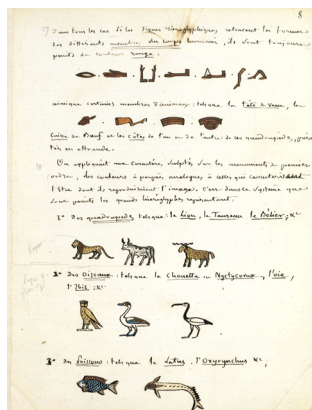 8
Dans tous les cas où les signes hiéroglyphiques retracent les formes
des différents membres du corps humain, ils sont toujours
peints de couleur rouge.
ainsi que certains membres d'animaux: tels que la tête de veau, la
cuisse de Bœuf et les côtes de l'un ou de l'autre de ces quadrupèdes,
en offrande.
On appliquait aux caractères, sculptés sur les monuments du premier
ordre, des couleurs à peu près analogues à celles qui caractérisent
l'Être dont ils reproduisaient l'image. c'est dans ce système que
sont peints les grands hiéroglyphes représentant.
1° Des quadrupèdes, tels que: le Lion, le Taureau le Bélier; &c
2° Des Oiseaux: tels que la Chouette ou Nycticorax, l'oie,
l'Ibis; &c
3° Des Poissons: tels que le Latus, l'Oxyrynchus &c;